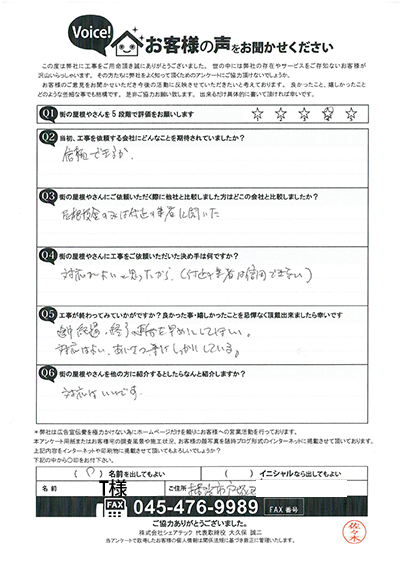 Voice!
お客様の声をお聞かせください
この度は弊社に工事をご用命頂き誠にありがとうございました。世の中には弊社の存在やサービスをご存知ないお客様が
沢山いらっしゃいます。その方たちに弊社をよく知って頂くためのアンケートにご協力頂けないでしょうか。
お客様のご意見をお聞かせいただき今後の活動に反映させていただきたいと考えております。良かったこと、嬉しかったこと
どのような些細な事でも結構です。是非ご協力お願い致します。出来るだけ具体的に書いて頂ければ幸いです。
Q1 街の屋根やさんを5段階で評価をお願いします ☆ ☆ ☆ ☆ ☆
Q2 当初、工事を依頼する会社にどんなことを期待されていましたか?
信頼できるか、
Q3 街の屋根やさんにご依頼いただく際に他社と比較しました方はどこの会社と比較しましたか?
Q4 街の屋根やさんに工事をご依頼いただいた決め手は何ですか?
対応がよいと思ったから、
Q5 工事が終わってみていかがですか?良かった事・嬉しかったことを忌憚なく頂戴出来ましたら幸いです
対応はよい、あいさつ等はしっかりしている。
Q6 街の屋根やさんを他の方に紹介するとしたらなんと紹介しますか?
対応はいいです。
*弊社は広告宣伝費を極力かけない為にホームページだけを頼りにお客様への営業活動を行っております。
本アンケート用紙またはお客様宅の調査風景や施工状況、お客様の顔写真を随時ブログ形式のインターネットに掲載させて頂いております。
上記内容をインターネットや印刷物に掲載させて頂いてもよろしいでしょうか?
下記の中から〇印をお付下さい。
(○)名前を出してもよい ( )イニシャルなら出してもよい
T様 ご住所
FAX 045-476-9989 FAX 番号
ご協力ありがとうございました。
株式会社シェアテック 代表取締役 大久保 誠二
当アンケートで取得したお客様の個人情報は関係法規に基づき厳正に管理いたします。
佐々木